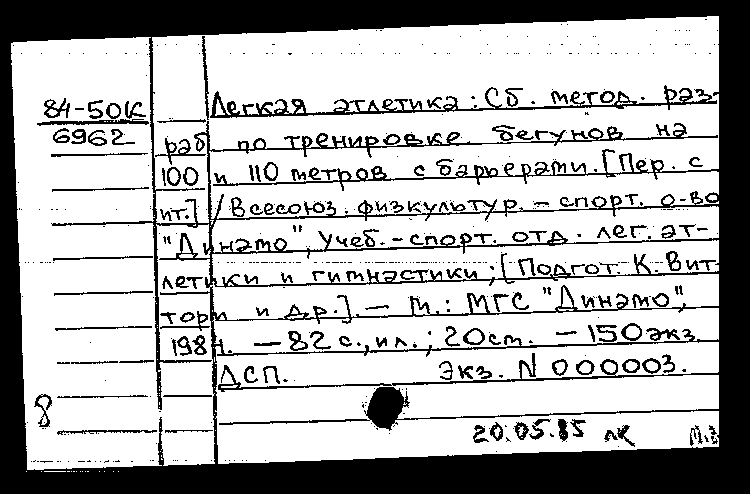 84-50К
6962
Легкая атлетика: Сб. метод. раз-
раб по тренировке бегунов на
100 и 110 метров с барьерами. [Пер. с
ит.] / Всесоюз. физкультур.-спорт. о-во
"Динамо", Учеб.-спорт. отд. лег. ат-
летики и гимнастики; [Подгот. К. Вит-
тори и др.]. — М.: МГС "Динамо",
1984. — 82 с., ил.; 20 см. — 150 экз.
ДСП. Экз. N 000003.
8
20.05.85 лк